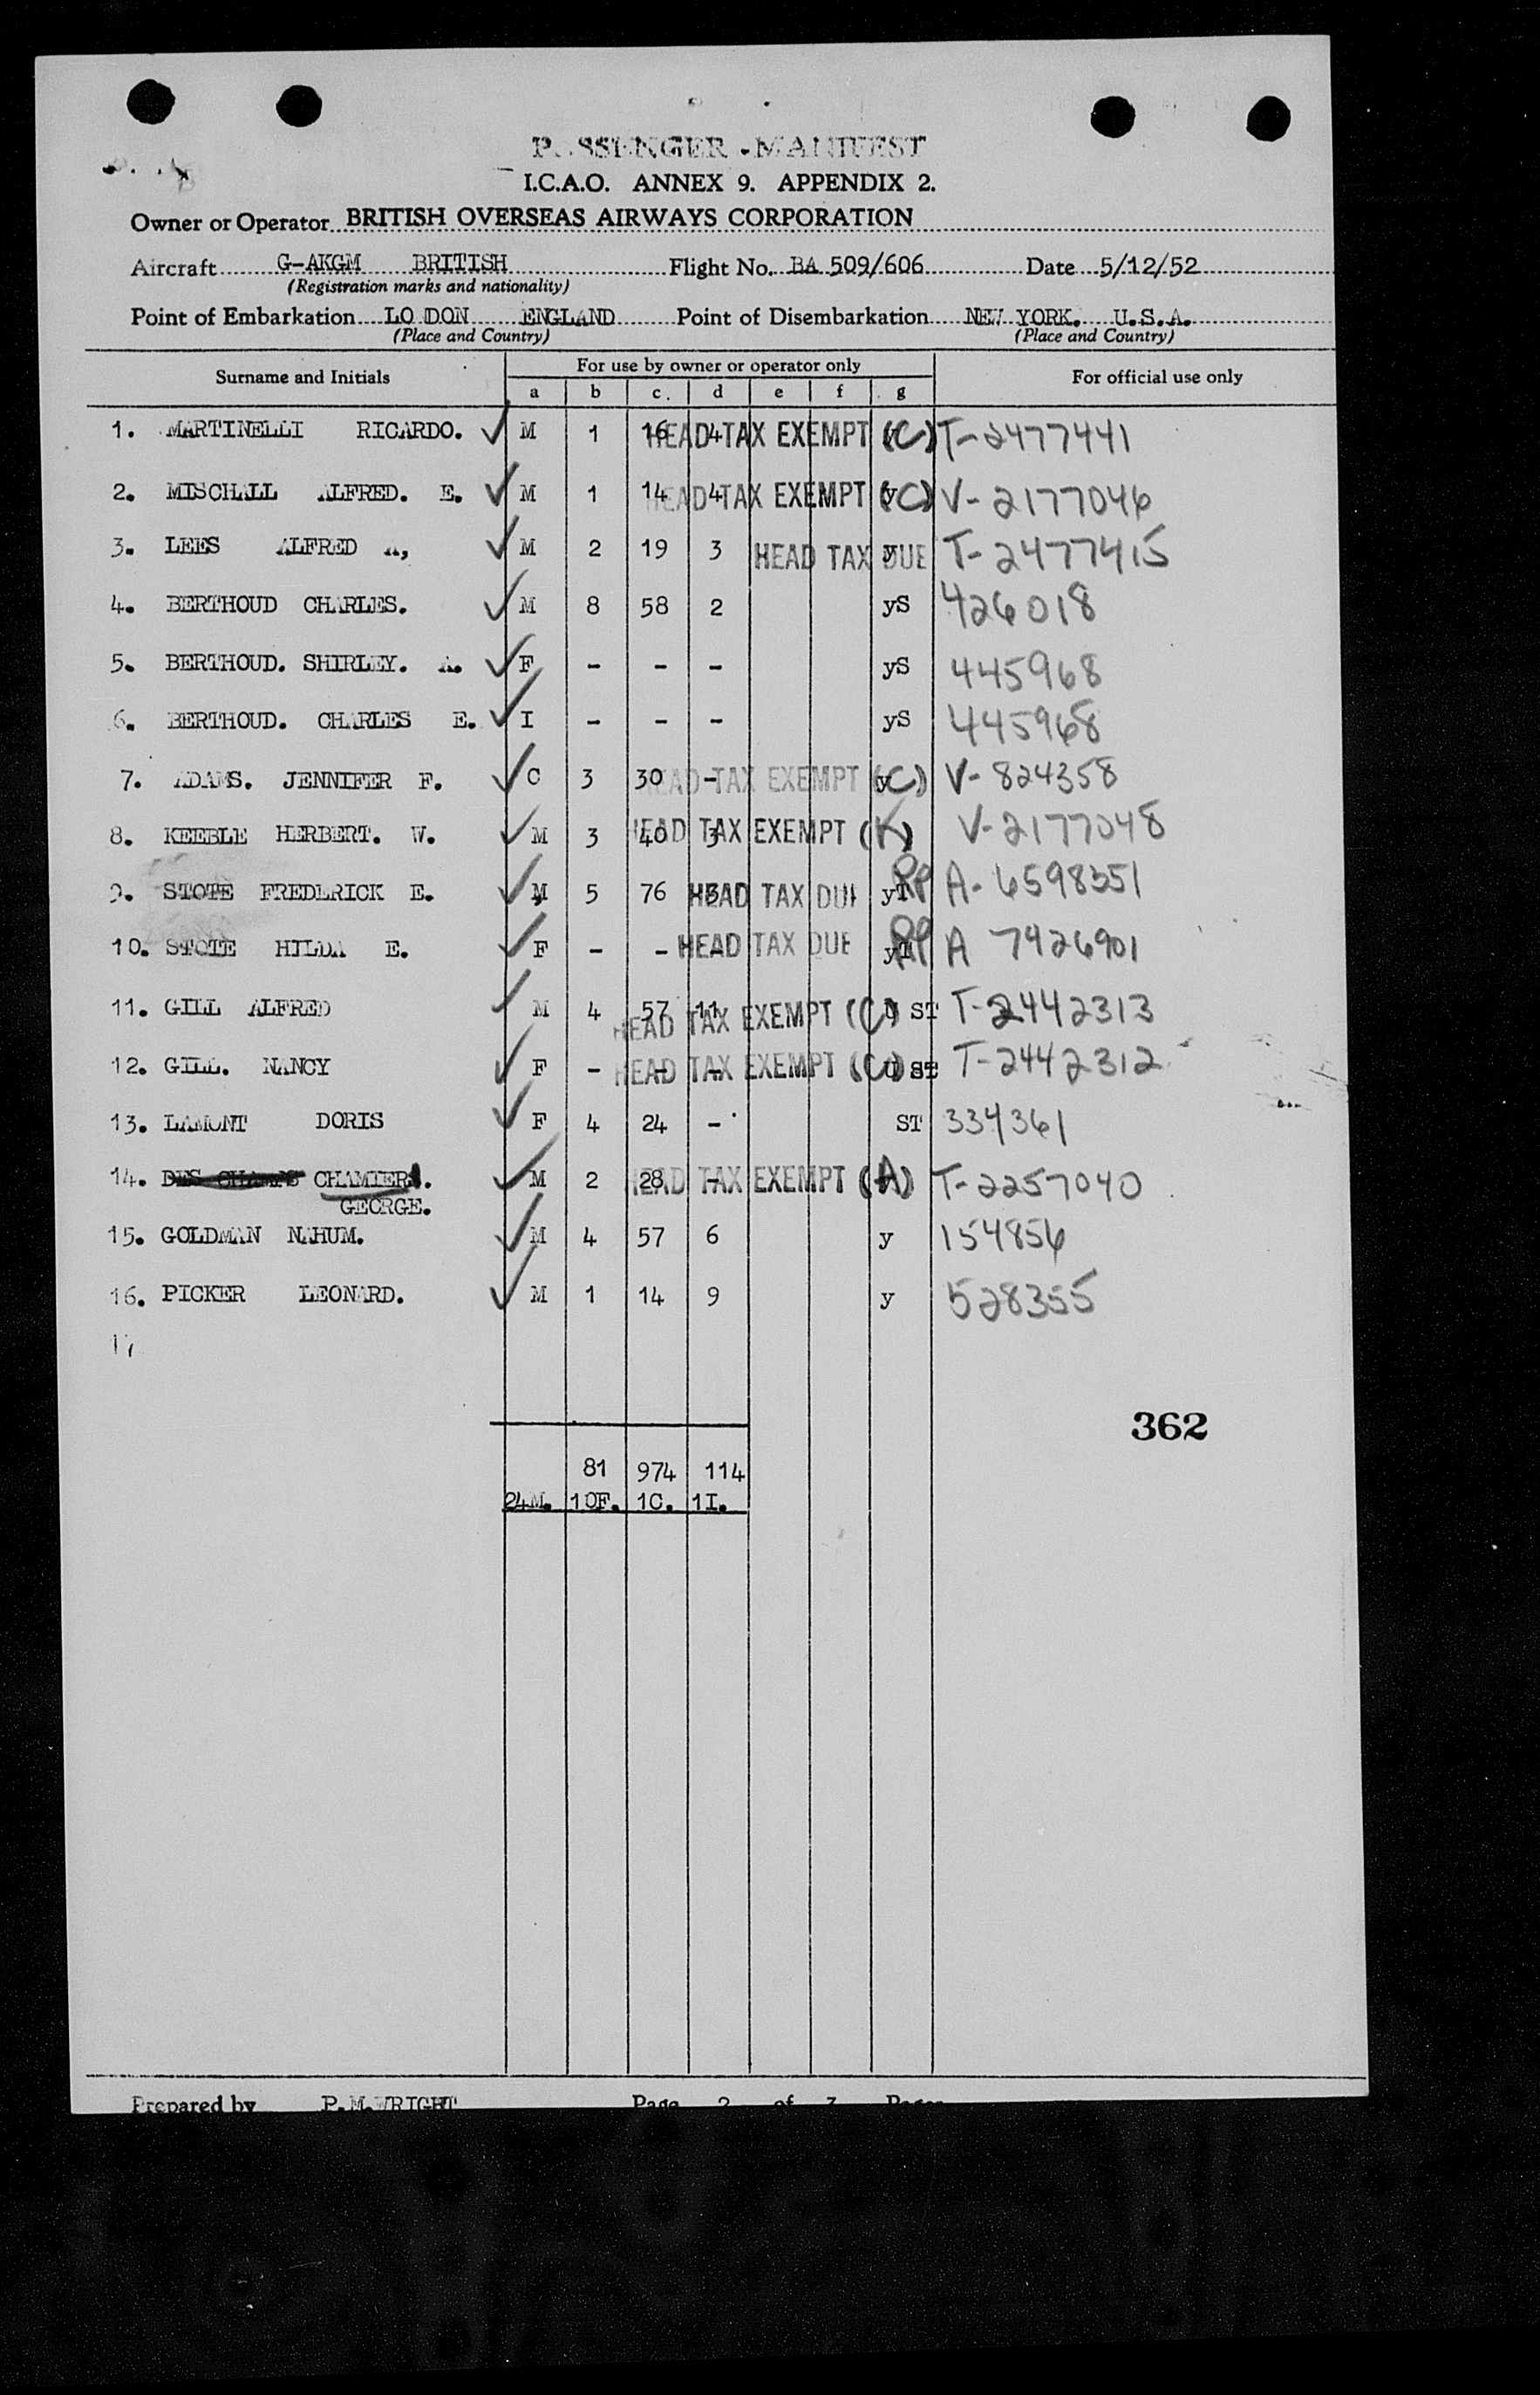 PASSENGER - MANIFEST
I.C.A.O. ANNEX 9. APPENDIX 2.
Owner or Operator BRITISH OVERSEAS AIRWAYS CORPORATION
Aircraft G-AKGM BRITISH Flight No. BA 509/606 Date 5/12/52
(Registration marks and nationality)
Point of Embarkation LO DON ENGLAND Point of Disembarkation NEW YORK. U.S.A.
(Place and Country) (Place and Country)
Surname and Initials For use by owner or operator only For official use only
a b c. d e f g
1. MARTINELLI RICARDO. M 1 16 4 HEAD TAX EXEMPT (C) T-2477441
2. MISCHALL ALFRED. E. M 1 14 4 HEAD TAX EXEMPT (C) y V-2177046
3. LEES ALFRED A, M 2 19 3 HEAD TAX DUE y T-2477415
4. BERTHOUD CHARLES. M 8 58 2 yS 426018
5. BERTHOUD. SHIRLEY. A. F - - - yS 445968
6. BERTHOUD. CHARLES E. I - - - yS 445968
7. ADAMS. JENNIFER F. C 3 30 - HEAD TAX EXEMPT (C) y V-824358
8. KEEBLE HERBERT. W. M 3 40 3 HEAD TAX EXEMPT (K) V-2177048
9. STOTE FREDERICK E. M 5 76 3 HEAD TAX DUE yT RP A-6598351
10. STOTE HILDA E. F - - - HEAD TAX DUE yT RP A 7426901
11. GILL ALFRED M 4 57 11 HEAD TAX EXEMPT (C) U ST T-2442313
12. GILL. NANCY F - - - HEAD TAX EXEMPT (C) U ST T-2442312
13. LAMONT DORIS F 4 24 - ST 334361
14. DES CHAMPS CHAMIER. M 2 28 - HEAD TAX EXEMPT (A) T-2257040
GEORGE.
15. GOLDMAN NAHUM. M 4 57 6 y 154856
16. PICKER LEONARD. M 1 14 9 y 528355
17
362
81 974 114
24M. 10F. 1C. 1I.
Prepared by P.M.WRIGHT Page 2 of 3 Pages